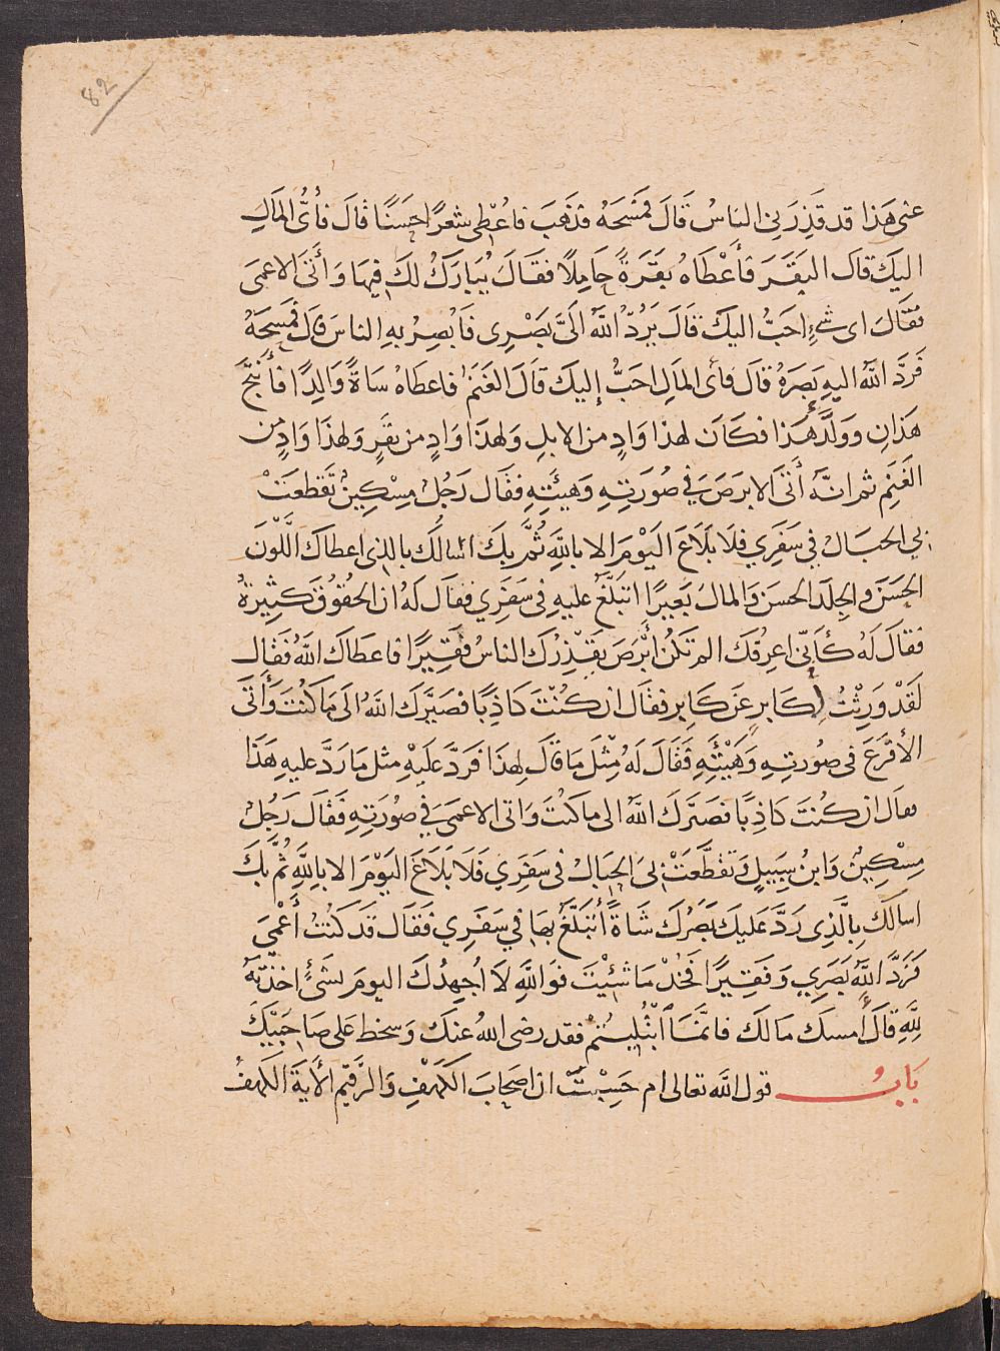 82
عنى هَذا قد قَذِرَنِى الناسُ قَالَ فَمَسَحَهُ فذَهَبَ فاعُطِى شعرًا حَسَنًا قالَ فأىُّ المَالِ
اليكَ قالَ البَقَرَ فَأعْطَاهُ بقَرَةً حَامِلًا فقَالَ يُبَارَكُ لكَ فيهَا وَأتَى الاعمَى
فقَالَ اى شىءٍ احَبُّ اليكَ قالَ يَرُدُّ اللَّهُ الَىَّ بَصَرِى فَابُصِرُ بهِ الناسَ قال فَمسَحَهُ
فَرَدَّ اللَّهُ اليهِ بَصَرَهُ قالَ فأى المَالِ احَبُّ إليكَ قَالَ الغَنمَ فاعطَاهُ شاةً وَالِدًا فأُنتِجَ
هَذانِ وَوَلَّدَ هَذا فكَانَ لهذا وَادٍ من الابلِ وَلهذَا وَادٍ من بقَرٍ وَلهذَا وَادٍ من
الغَنَمِ ثم انَّهُ أتَى الابرَصَ فى صُورَتِهِ وَهيئَتِهِ فقَال رَجُلٌ مِسْكِينٌ تَقَطعَتْ
بِى الحبَالُ فِى سَفَرِي فلَا بَلَاغَ اليَوْمَ الا باللَّهِ ثُمَّ بكَ اسالُكَ بالذِى اعطاكَ اللَّوْنَ
الحَسَنَ وَالجِلدَ الحسَنَ وَالمالَ بَعِيرًا اتبَلَّغُ عليهِ فِى سَفَرِي فقالَ لهُ ان الحقُوقَ كَثِيرةٌ
فقالَ لَهُ كَأَنِّى اعرِفُكَ الم تَكُنْ أبْرَصَ يَقْذِرُكَ الناسُ فَقِيرًا فاعطَاكَ اللَّهُ فقَال
لَقَدْ وَرِثْتُ لِكَابرٍ عَن كابِرٍ فقَال ان كُنْتَ كاذِبًا فصَيَّرَكَ اللَّهُ الَى مَا كُنْتَ وَأتَى
الأقْرَعَ فى صُورتِهِ وَهَيْئَتِهِ فَقَالَ لَهُ مِثْلَ مَا قالَ لِهذَا فَردَّ عَلَيْهِ مثل مَا رَدَّ عليهِ هَذَا
فقال ان كُنتَ كَاذِبًا فصَيَّركَ اللَّهُ الى ما كنْتَ وَاتى الاعمَى فِى صُورَتِهِ فَقَالَ رَجُلٌ
مِسْكِينٌ وَابنُ سَبِيلٍ وَتقَطَّعَتْ بِىَ الحبَالُ فى سَفَرِي فَلَا بَلَاغَ اليَوْمَ الا باللَّهِ ثُمَّ بكَ
اسالكَ بِالَّذِى رَدَّ عَليكَ بَصَرُكَ شَاةً أتَبَلَّغُ بهَا فِي سَفَرِي فَقَالَ قد كنتُ أعْمَى
فَرَدَّ اللَّهُ بَصَرِى وَفَقِيرًا فَخُذْ مَا شئِيْتَ فوَاللَّهِ لَا اُجهِدُكَ اليومَ بشَىْءٍ اخذْتَهُ
لِلَّهِ قالَ امسك مَا لَكَ فانَّمَا ابْتُلِيتُمْ فقد رضى اللهُ عنكَ وَسخط عَلى صَاحِبَيْكَ
بابُ قول اللَّه تعالى ام حَسِبْتَ ان اصحَابَ الكَهْفِ وَالرَّقِيم الآيةَ الكَهْفُ